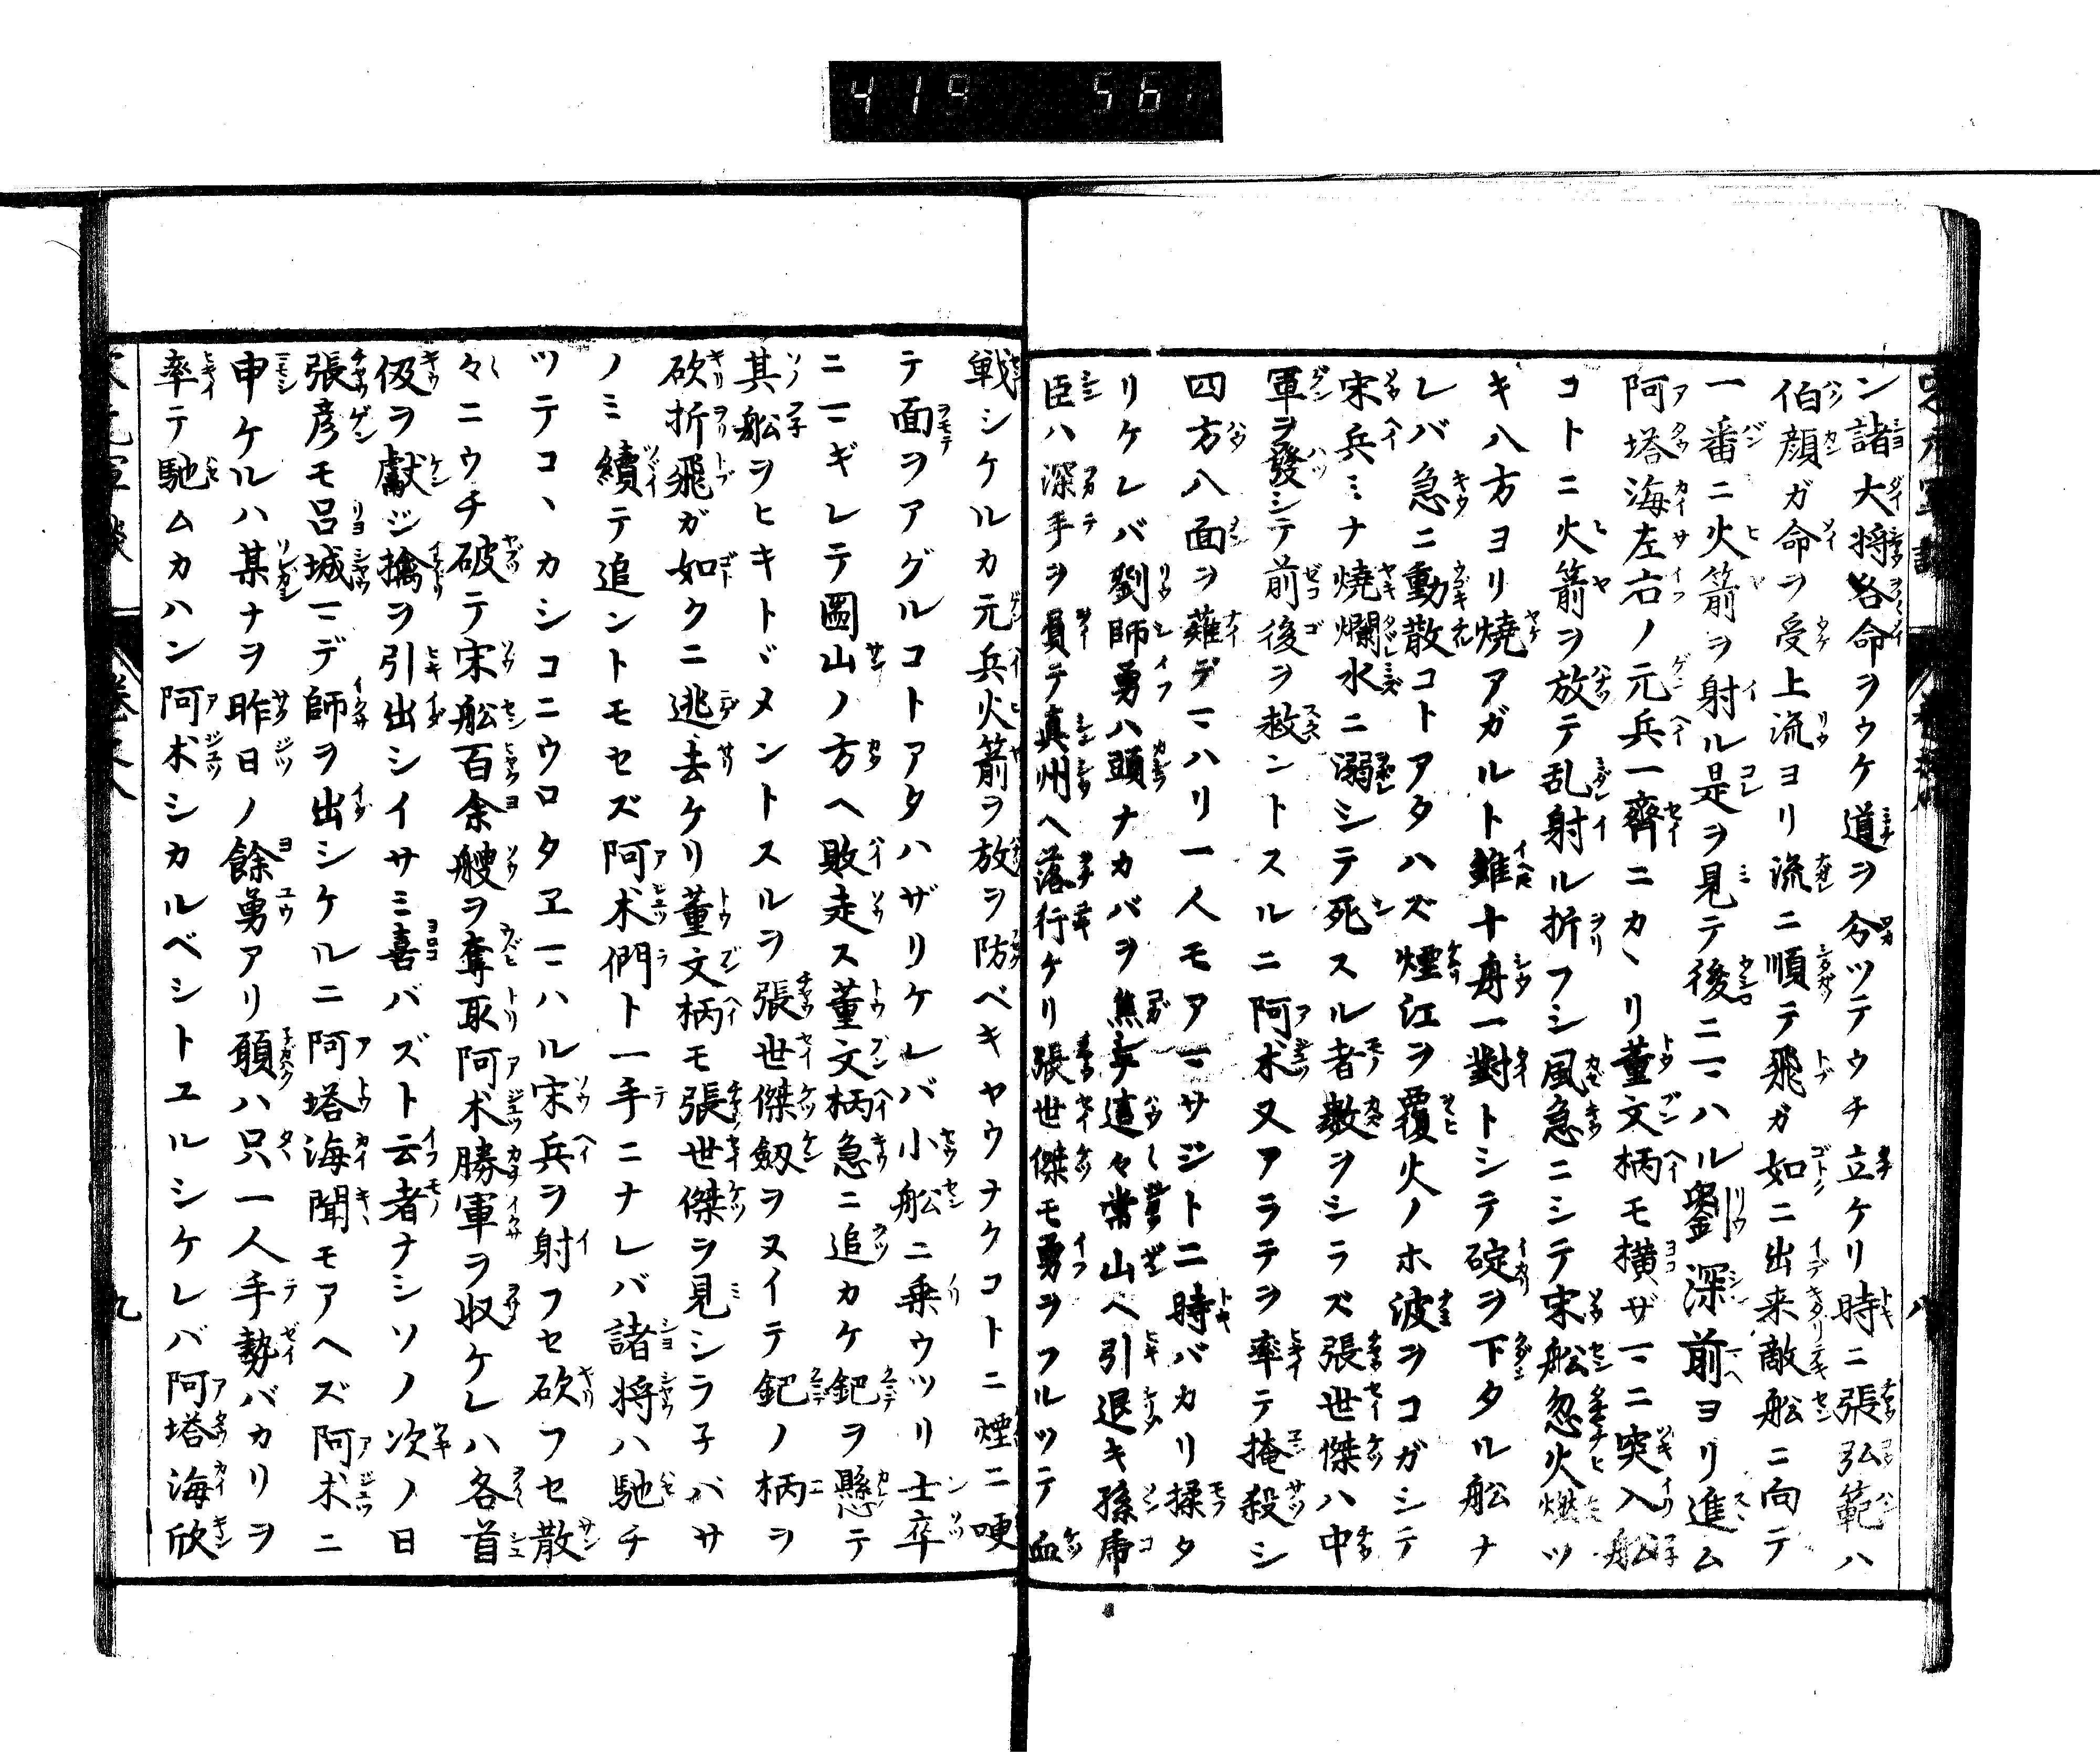 419 56
ン諸大将各命ヲウケ道ヲ分ツテウチ立ケリ時ニ張弘範ハ
伯顔ガ命ヲ受上流ヨリ流ニ順テ飛ガ如ニ出来敵舩ニ向テ
一番ニ火箭ヲ射ル是ヲ見テ後ニマハル劉深前ヨリ進ム
阿塔海左右ノ元兵一齊ニカヽリ董文柄モ横ザマニ突入舩
コトニ火箭ヲ放テ乱射ル折フシ風急ニシテ宋舩忽火燃ツ
キ八方ヨリ焼アガルト雖十舟一對トシテ碇ヲ下タル舩ナ
レバ急ニ動散コトアタハズ煙江ヲ覆火ノホ波ヲコガシテ
宋兵ミナ焼爛水ニ溺シテ死スル者數ヲシラズ張世傑ハ中
軍ヲ發シテ前後ヲ救ントスルニ阿朮又アラテヲ率テ掩殺シ
四方八面ヲ薙デマハリ一人モアマサジト二時バカリ揉タ
リケレバ劉師勇ハ頭ナカバヲ焦シ這々常山ヘ引退キ孫虎
臣ハ深手ヲ負テ真州ヘ落行ケリ張世傑モ勇ヲフルツテ血
戦シケルカ元兵火箭ヲ放ヲ防ベキヤウナクコトニ煙ニ哽
テ面ヲアグルコトアタハザリケレバ小舩ニ乗ウツリ士卒
ニマギレテ圌山ノ方ヘ敗走ス董文柄急ニ追カケ鈀ヲ懸テ
其舩ヲヒキトヾメントスルヲ張世傑劔ヲヌイテ鈀ノ柄ヲ
砍折飛ガ如クニ逃去ケリ董文柄モ張世傑ヲ見シラ子バサ
ノミ續テ追ントモセズ阿朮們ト一手ニナレバ諸将ハ馳チ
ツテコヽカシコニウロタヱマハル宋兵ヲ射フセ砍フセ散
々ニウチ破テ宋舩百余艘ヲ奪取阿朮勝軍ヲ収ケレハ各首
伋ヲ獻ジ擒ヲ引出シイサミ喜バズト云者ナシソノ次ノ日
張彦モ呂城マデ師ヲ出シケルニ阿塔海聞モアヘズ阿朮ニ
申ケルハ某ナヲ昨日ノ餘勇アリ願ハ只一人手勢バカリヲ
率テ馳ムカハン阿朮シカルベシトユルシケレバ阿塔海欣
九